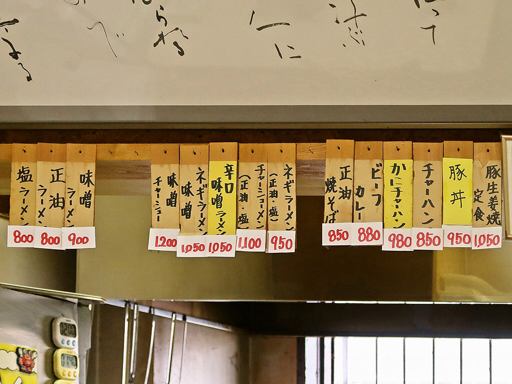 豚生姜焼
定食
1,050
豚丼
950
チャーハン
850
かにチャーハン
980
ビーフ
カレー
880
正油
焼そば
850
ネギラーメン
(正油・塩)
950
チャーシューメン
(正油・塩)
1,100
辛口
味噌ラーメン
1,050
ネギラーメン
味噌
1,050
味噌
チャーシュー
1,200
味噌
ラーメン
900
正油
ラーメン
800
塩
ラーメン
800